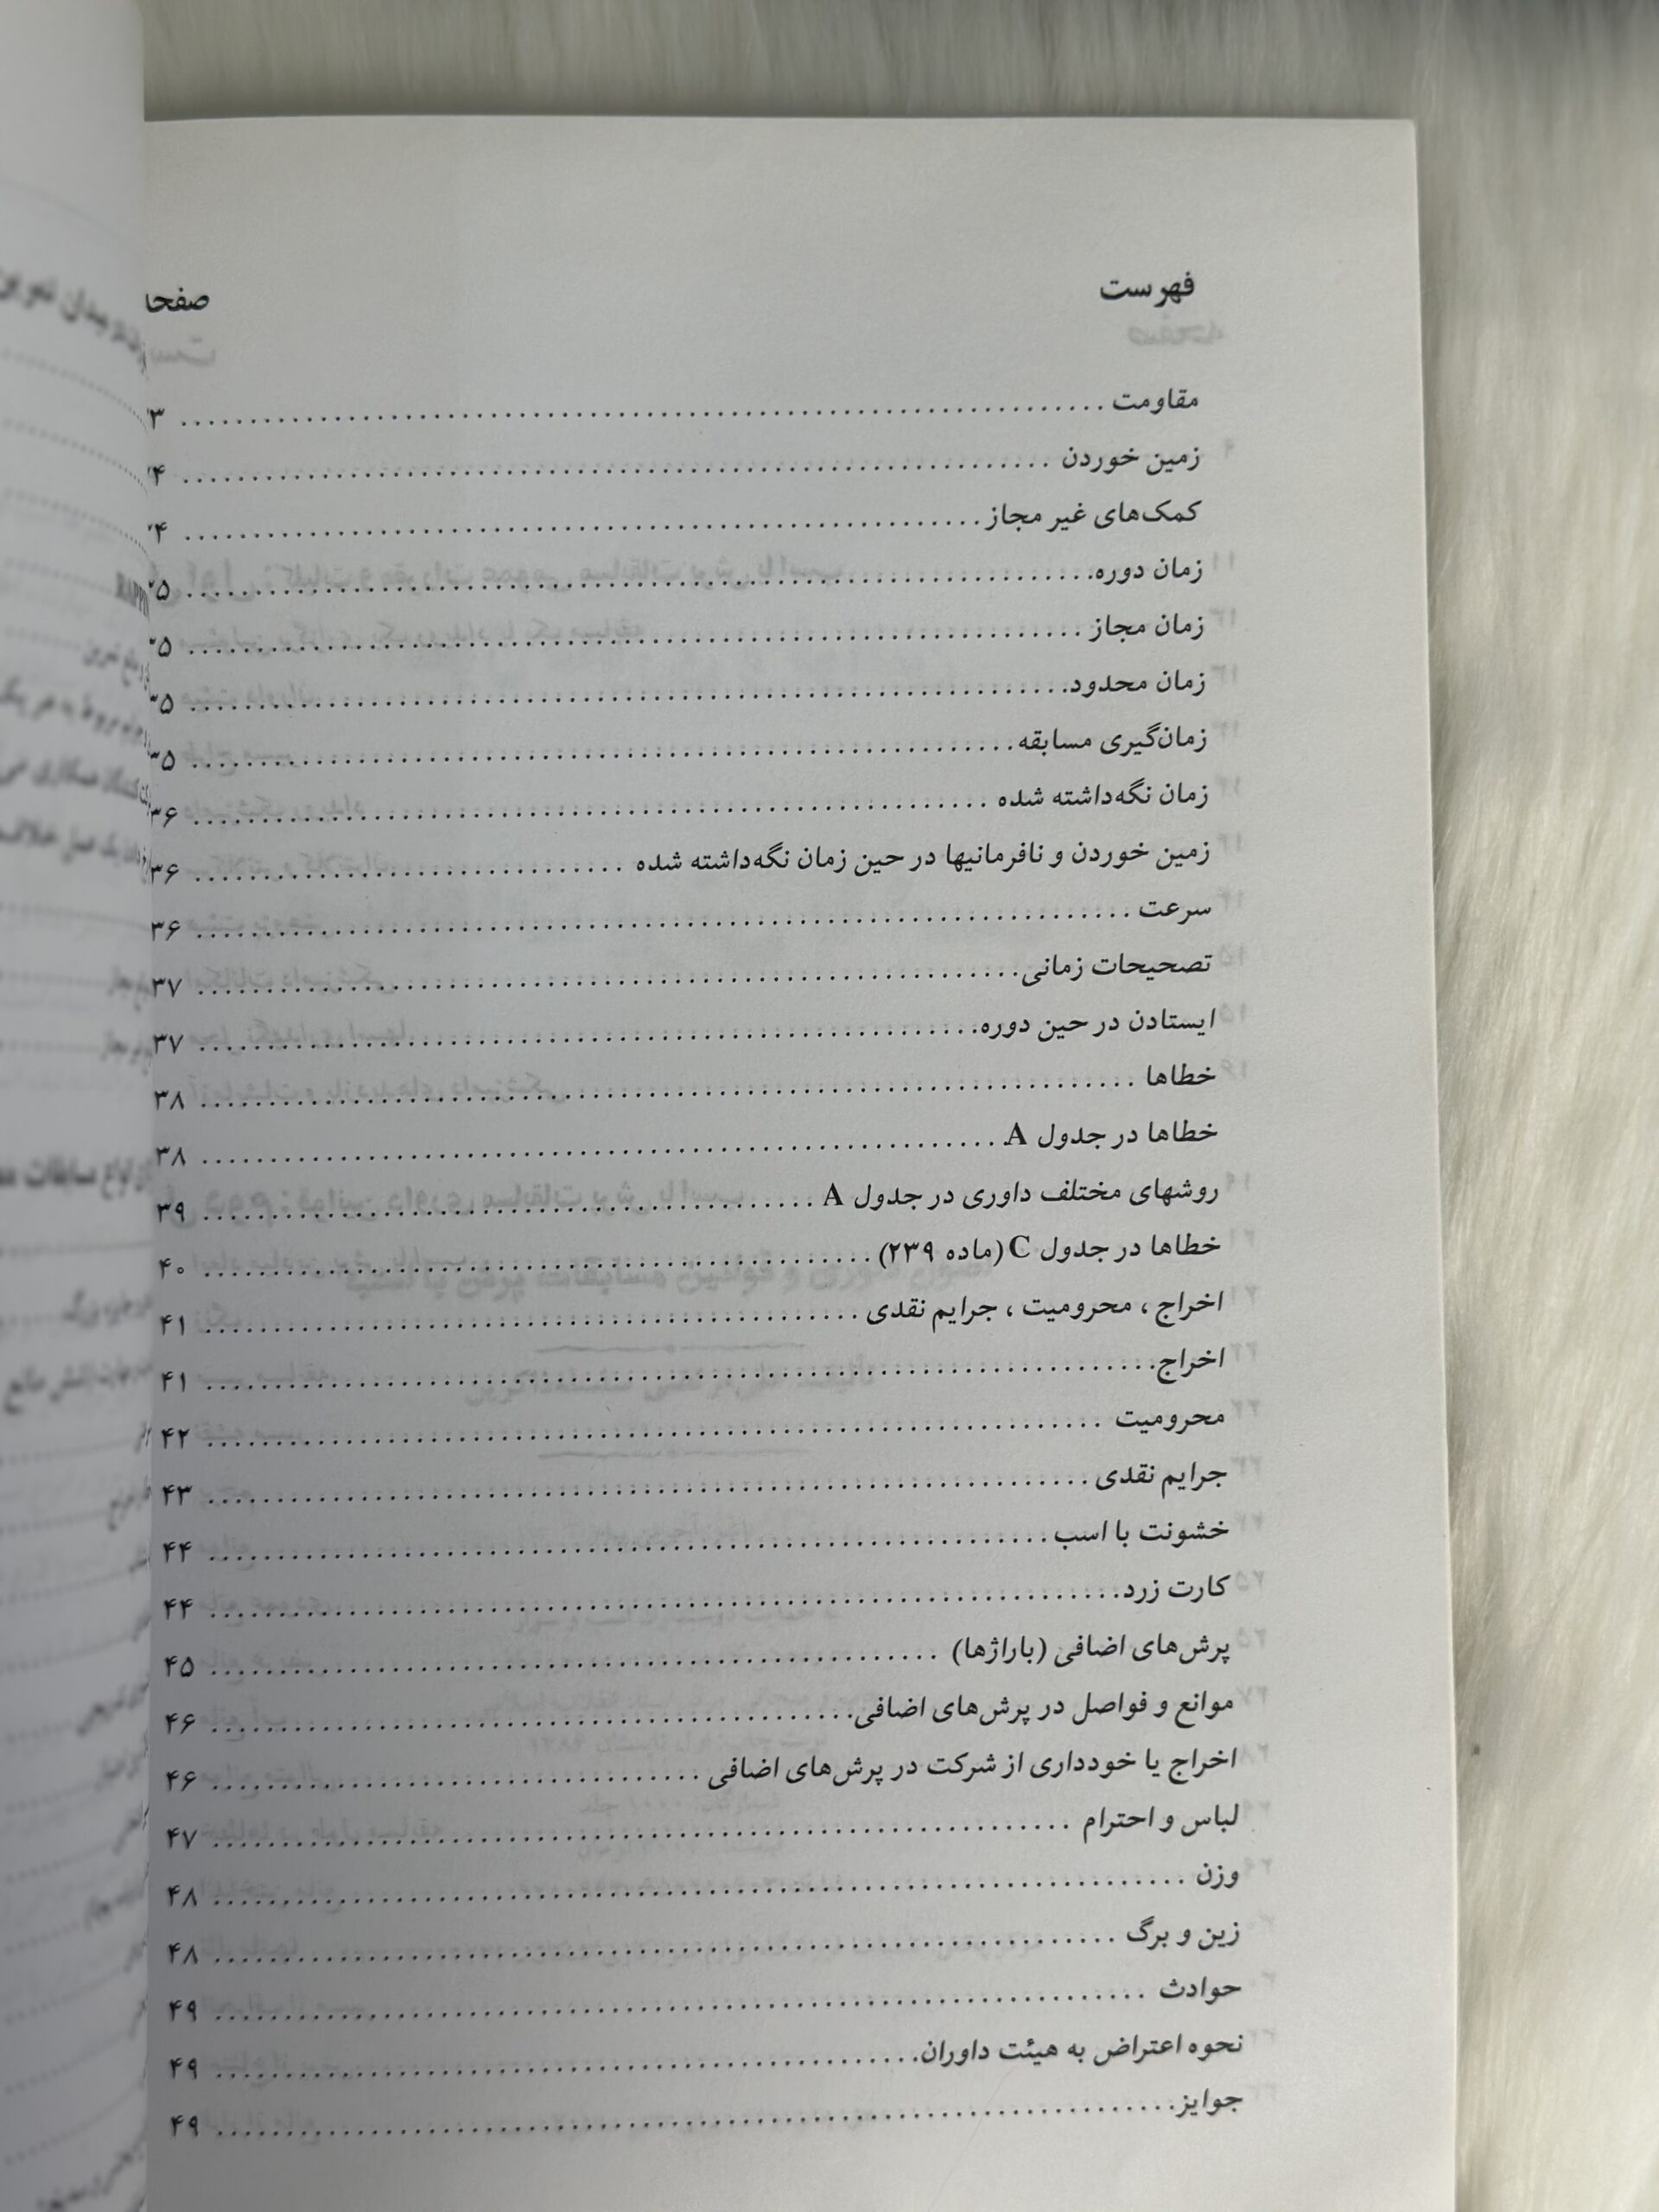 فهرست
مقاومت ........ ۳
زمین خوردن ........ ۴
کمک‌های غیر مجاز ........ ۴
زمان دوره ........ ۳۵
زمان مجاز ........ ۳۵
زمان محدود ........ ۳۵
زمان‌گیری مسابقه ........ ۳۵
زمان نگه‌داشته شده ........ ۳۶
زمین خوردن و نافرمانیها در حین زمان نگه‌داشته شده ........ ۳۶
سرعت ........ ۳۶
تصحیحات زمانی ........ ۳۷
ایستادن در حین دوره ........ ۳۷
خطاها ........ ۳۸
خطاها در جدول A ........ ۳۸
روشهای مختلف داوری در جدول A ........ ۳۹
خطاها در جدول C (ماده ۲۳۹) ........ ۴۰
اخراج ، محرومیت ، جرایم نقدی ........ ۴۱
اخراج ........ ۴۱
محرومیت ........ ۴۲
جرایم نقدی ........ ۴۳
خشونت با اسب ........ ۴۴
کارت زرد ........ ۴۴
پرش‌های اضافی (باراژها) ........ ۴۵
موانع و فواصل در پرش‌های اضافی ........ ۴۶
اخراج یا خودداری از شرکت در پرش‌های اضافی ........ ۴۶
لباس و احترام ........ ۴۷
وزن ........ ۴۸
زین و برگ ........ ۴۸
حوادث ........ ۴۹
نحوه اعتراض به هیئت داوران ........ ۴۹
جوایز ........ ۴۹